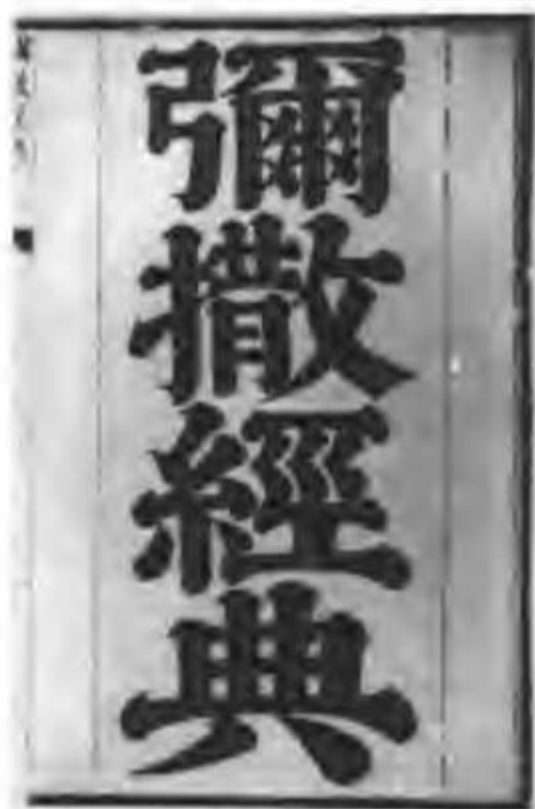 彌撒經典